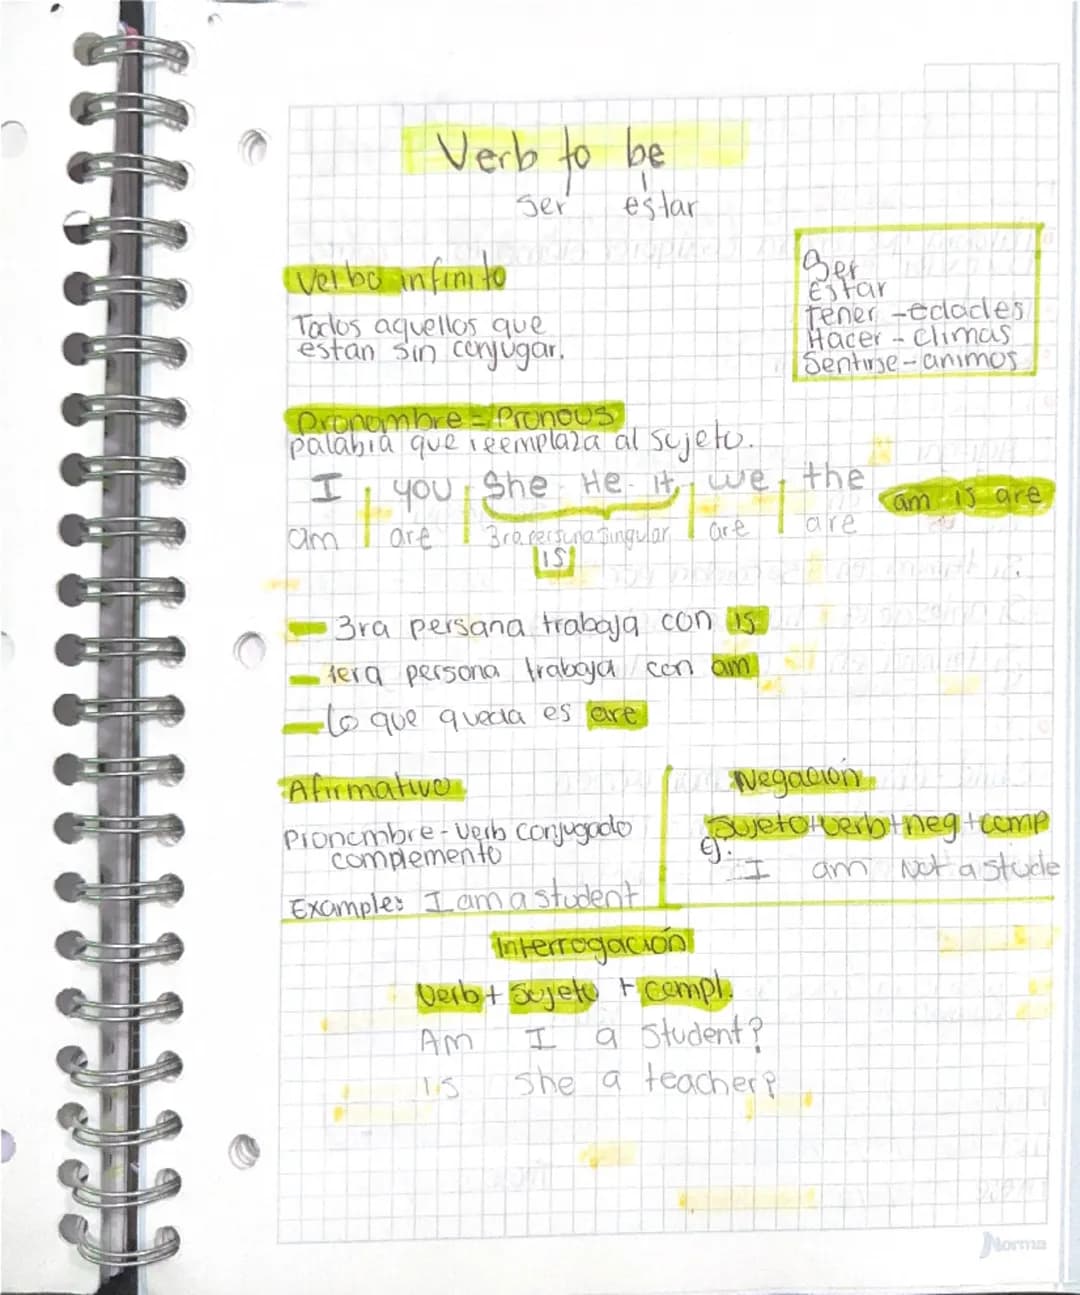 Verb to be
ser estar
Verbo infinito
Todos aquellos que
estan sin conjugar.
Ser
Estar
Tener - edades
Hacer - climas
Sentirse - animos
Pronombre = Pronous
palabra que reemplaza al sujeto.
I you She He it we the
am is are
am are 3ra persona singular are are
is
3ra persona trabaja con is
1era persona trabaja con am
Lo que queda es are
Afirmativo
Pronombre - Verb conjugado
complemento
Example: I am a student
Negación
Sujeto + verb + neg + comp
Ej:
I am Not a stude
Interrogación
Verb + Sujeto + compl.
Am I a student?
is she a teacher?
Norma